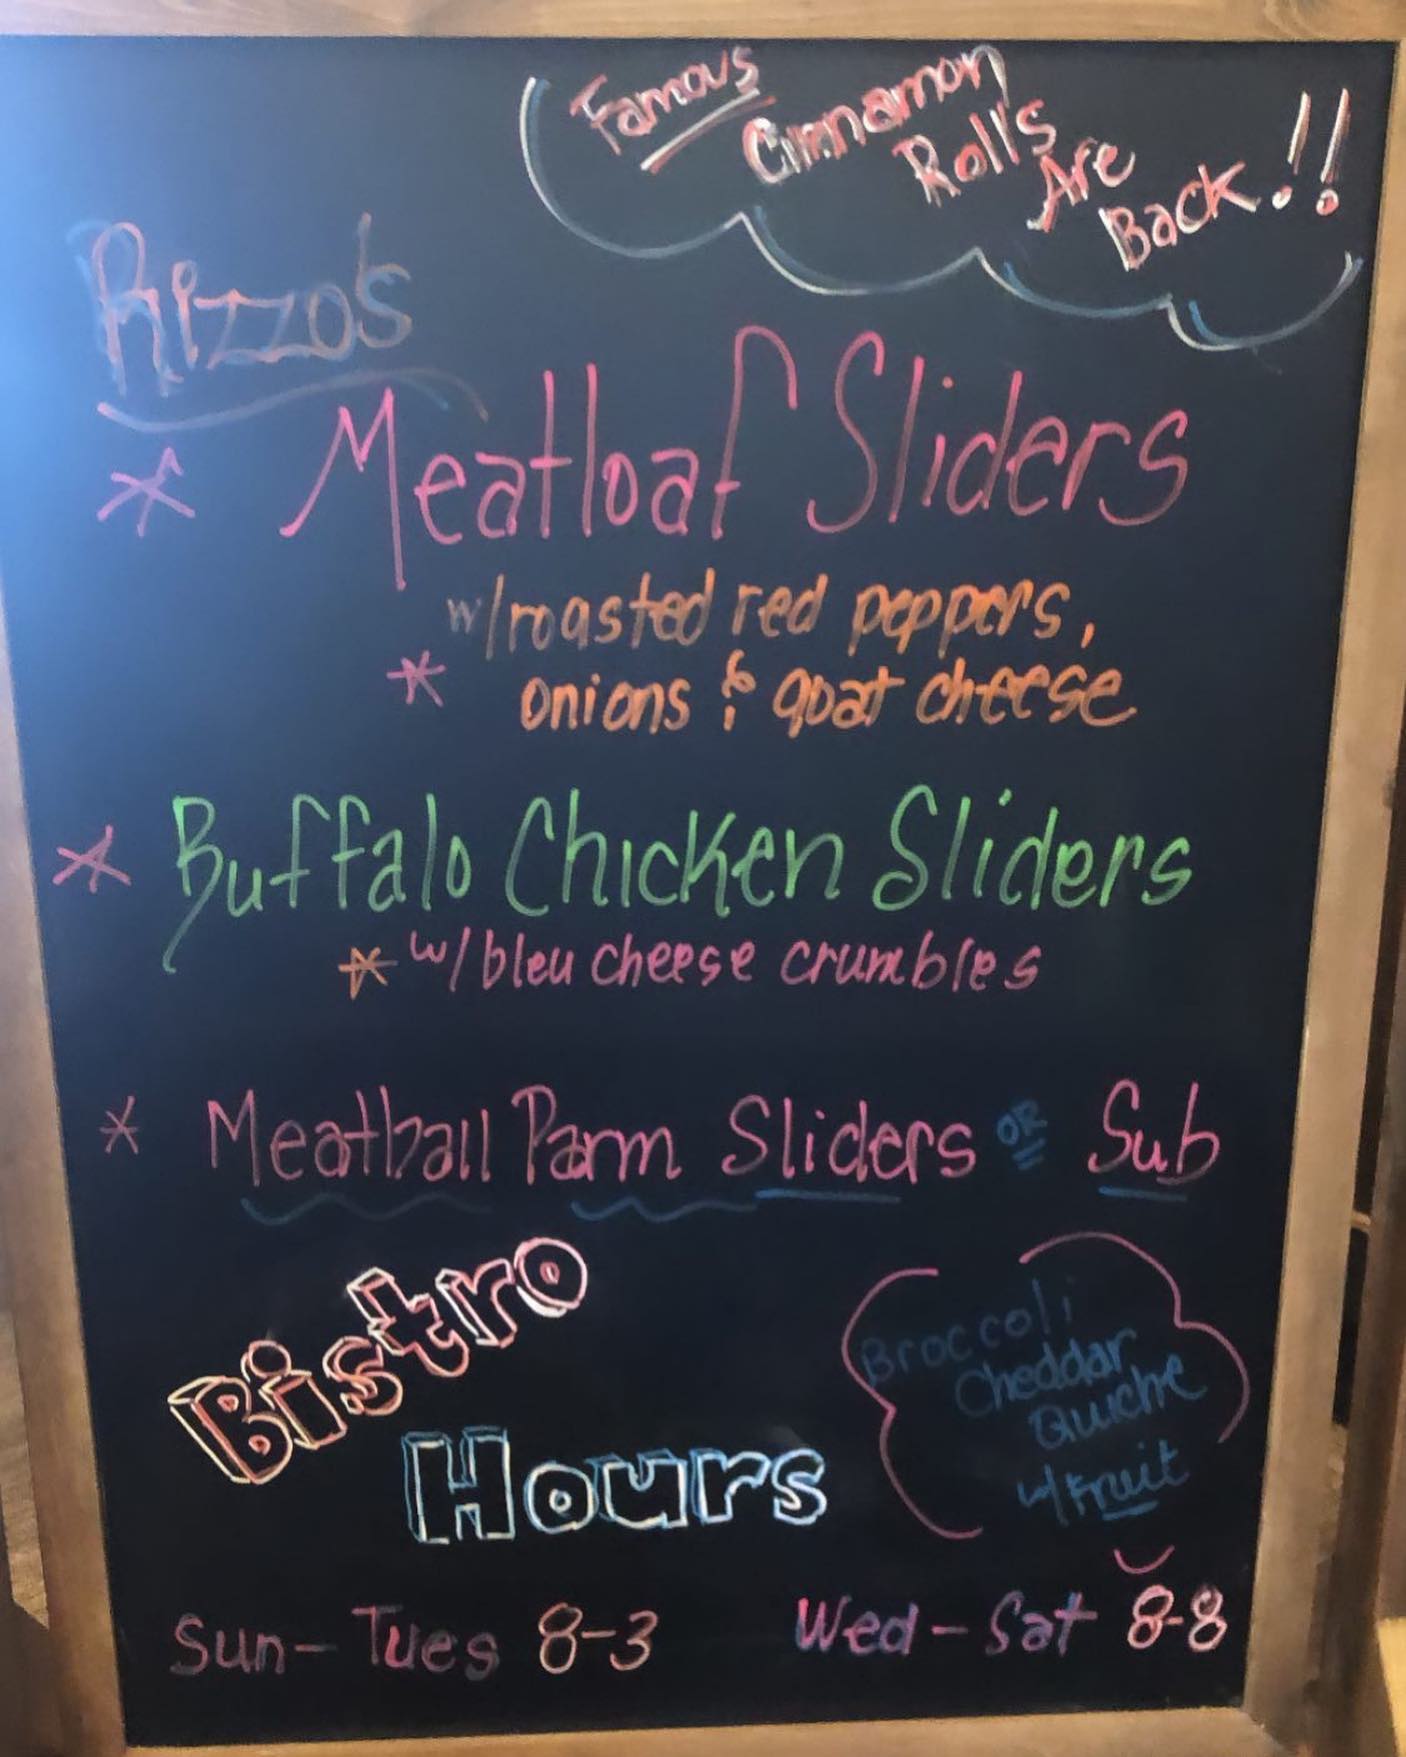 Famous
Cinnamon
Roll's
Are
Back!!
Rizzo's
* Meatloaf Sliders
w/roasted red peppers,
* onions & goat cheese
* Buffalo Chicken Sliders
* w/bleu cheese crumbles
* Meatball Parm Sliders OR Sub
Bistro
Hours
Broccoli
Cheddar
Quiche
w/Fruit
Sun-Tues 8-3
Wed-Sat 8-8